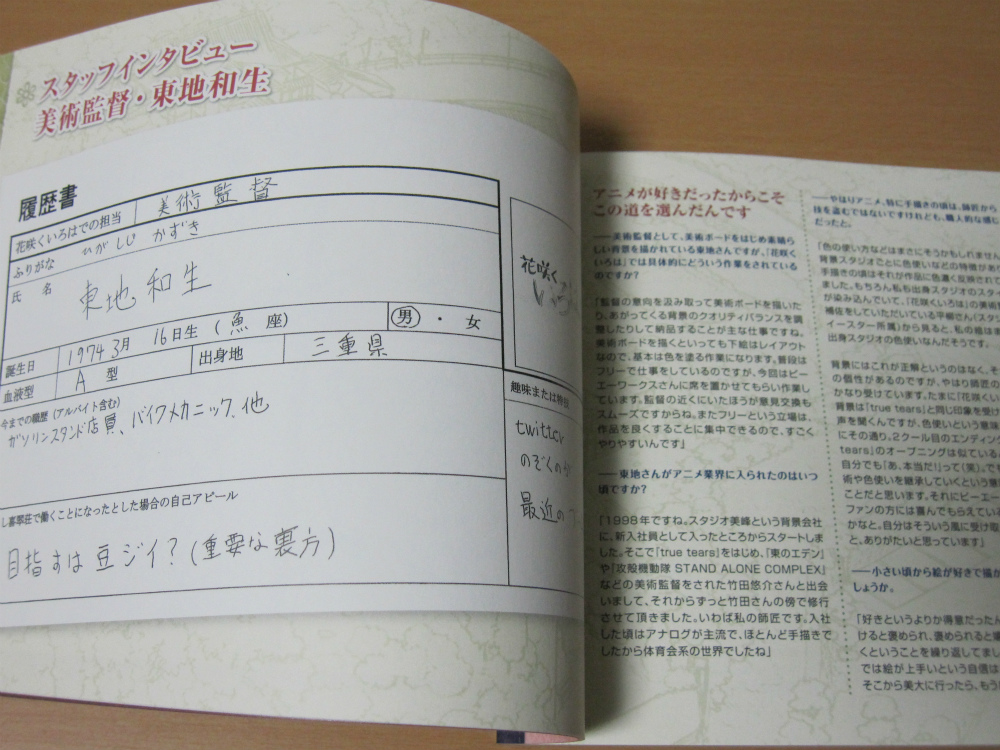 スタッフインタビュー
美術監督・東地和生
履歴書
花咲くいろはでの担当 美術監督
ふりがな ひがしじ かずき
氏 名 東地和生
誕生日 1974 3月 16日生 (魚座) 男・女
血液型 A 型 出身地 三重県
今までの職歴(アルバイト含む)
ガソリンスタンド店員、バイクメカニック、他
し喜翆荘で働くことになったとした場合の自己アピール
目指すは豆ジイ?(重要な裏方)
花咲く
いろ
趣味または特技
twitter
のぞくの
最近の
アニメが好きだったからこそ
この道を選んだんです
――美術監督として、美術ボードをはじめ素晴ら
しい背景を描かれている東地さんですが、『花咲く
いろは』では具体的にどういう作業をされている
のですか?
「監督の意向を汲み取って美術ボードを描いた
り、あがってくる背景のクオリティバランスを調
整したりして納品することが主な仕事ですね。
美術ボードを描くといっても下絵はレイアウト
なので、基本は色を塗る作業になります。普段は
フリーで仕事をしているのですが、今回はピー
エーワークスさんに席を置かせてもらい作業し
ています。監督の近くにいたほうが意見交換も
スムーズですからね。またフリーという立場は、
作品を良くすることに集中できるので、すごく
やりやすいんです」
――東地さんがアニメ業界に入られたのはいつ
頃ですか?
「1998年ですね。スタジオ美峰という背景会社
に、新入社員として入ったところからスタートしま
した。そこで『true tears』をはじめ、『東のエデン』
や『攻殻機動隊 STAND ALONE COMPLEX』
などの美術監督をされた竹田悠介さんと出会
いまして、それからずっと竹田さんの傍で修行
させて頂きました。いわば私の師匠です。入社
した頃はアナログが主流で、ほとんど手描きで
したから体育会系の世界でしたね」
――やはりアニメ、特に手描きの頃は、師匠から
技を盗むではないですけれども、職人的な感じ
だったと。
「色の使い方などはまさにそうかもしれません
背景スタジオごとに色使いなどの特徴があ
手描きの頃はそれが作品に色濃く反映されて
ました。もちろん私も出身スタジオのスタ
が染み込んでいて、『花咲くいろは』の美術
補佐をしていただいている平柳さん(スタジ
イースター所属)から見ると、私の絵は
出身スタジオの色使いなんだそうです。
背景にはこれが正解というのはなく、そ
の個性があるのですが、やはり師匠の
かなり受けています。たまに『花咲くい
背景は『true tears』と同じ印象を受け
声を聞くんですが、色使いという意味
にその通り。2クール目のエンディング
tears』のオープニングは似ている
自分でも「あ、本当だ!」って(笑)。で
術や色使いを継承していくという意
ことだと思います。それにピーエー
ファンの方には喜んでもらえている
かなと。自分はそういう風に受け取
と、ありがたいと思っています」
――小さい頃から絵が好きで描か
しょうか。
「好きというよりか得意だったん
けると褒められ、褒められると
くということを繰り返してまし
では絵が上手いという自信は
そこから美大に行ったら、もう